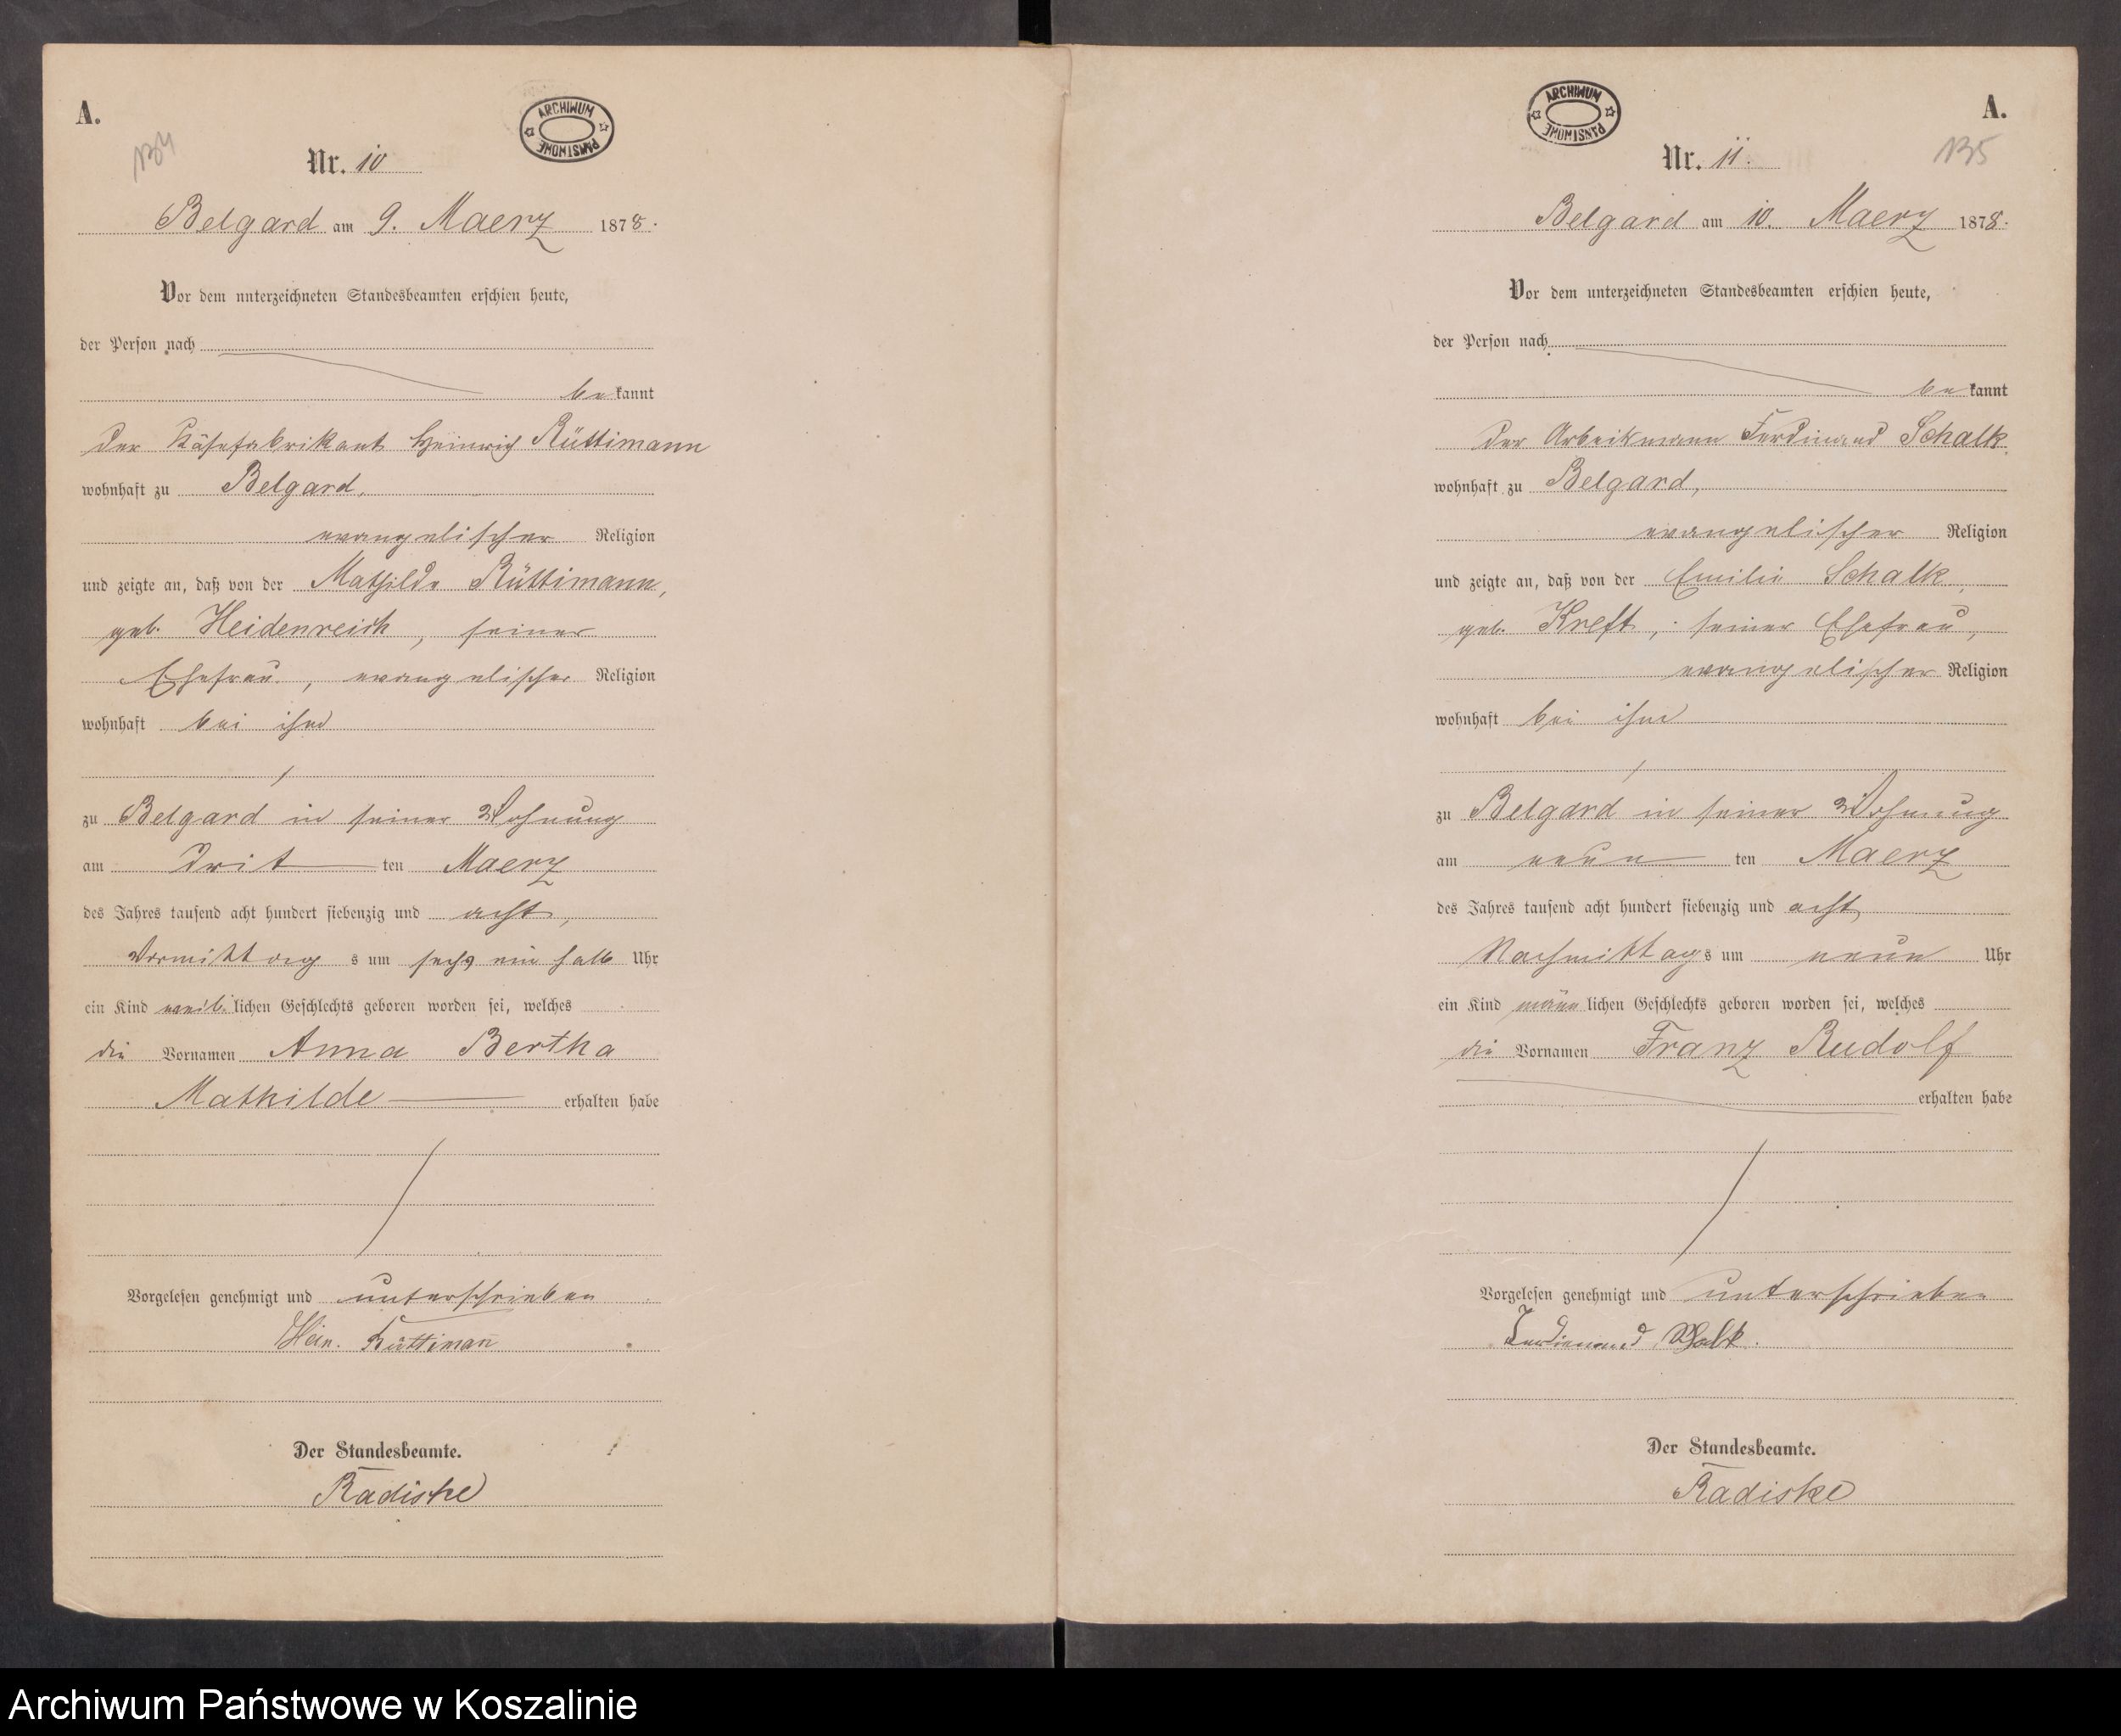 A.
134
ARCHIWUM PAŃSTWOWE
Nr. 10
Belgard am 9. Maerz 1878.
Vor dem unterzeichneten Standesbeamten erschien heute,
der Person nach
bekannt
der Käsefabrikant Heinrich Rüttimann
wohnhaft zu Belgard,
evangelischer Religion
und zeigte an, daß von der Mathilde Rüttimann,
geb. Heidenreich, seiner
Ehefrau, evangelischer Religion
wohnhaft bei ihm
zu Belgard in seiner Wohnung
am dritten Maerz
des Jahres tausend acht hundert siebenzig und acht,
Vormittags um sechs ein halb Uhr
ein Kind weiblichen Geschlechts geboren worden sei, welches
die Vornamen Anna Bertha
Mathilde erhalten habe
Vorgelesen genehmigt und unterschrieben
Hein. Rüttimañ
Der Standesbeamte.
Radiske
A.
135
ARCHIWUM PAŃSTWOWE
Nr. 11.
Belgard am 10. Maerz 1878.
Vor dem unterzeichneten Standesbeamten erschien heute,
der Person nach
bekannt
der Arbeitsmann Ferdinand Schalk,
wohnhaft zu Belgard,
evangelischer Religion
und zeigte an, daß von der Emilie Schalk,
geb. Kreft, seiner Ehefrau,
evangelischer Religion
wohnhaft bei ihm
zu Belgard in seiner Wohnung
am neunten Maerz
des Jahres tausend acht hundert siebenzig und acht
Nachmittags um neun Uhr
ein Kind männlichen Geschlechts geboren worden sei, welches
die Vornamen Franz Rudolf
erhalten habe
Vorgelesen genehmigt und unterschrieben
Ferdienand Schalk.
Der Standesbeamte.
Radiske
Archiwum Państwowe w Koszalinie